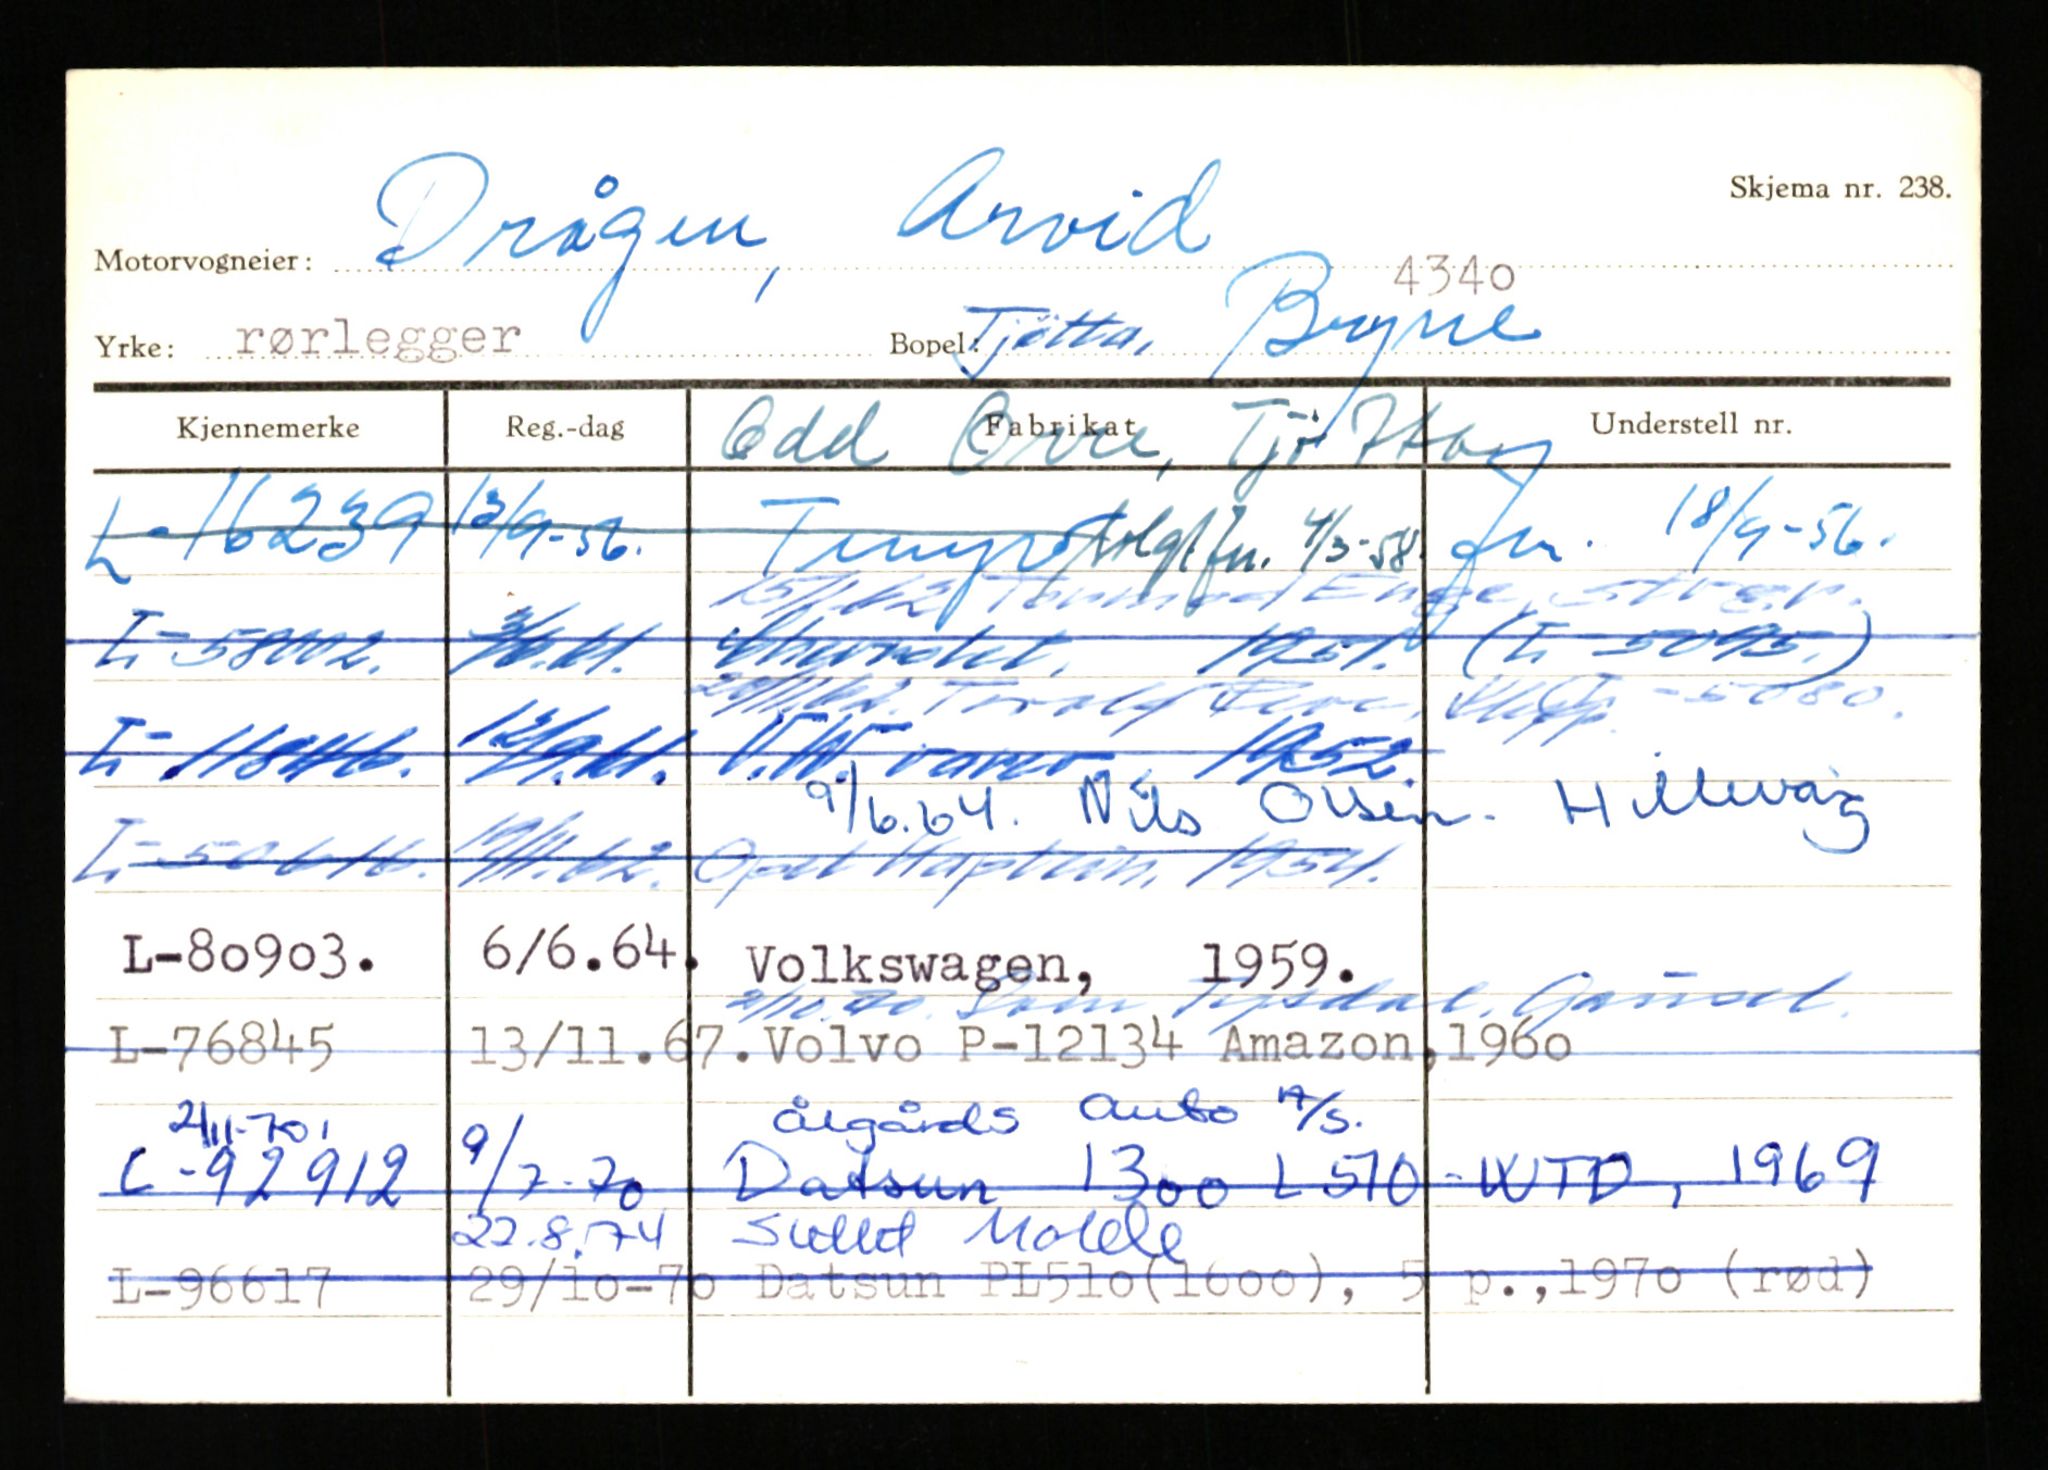 Skjema nr. 238.
Motorvogneier: Drågen, Arvid
4340
Yrke: rørlegger Bopel: Tjøtta, Bryne
Kjennemerke Reg.-dag Fabrikat Understell nr.
Odd Orre, Tjøtta
L-16239 13/9-56. Tempo solgt fr. 4/3-58. fr. 18/9-56.
15/1.62 Tormod Enge,
L-58002. Chevrolet, 1951. (L-5095.)
Klepp. L-5080.
L-11846. 12/9.61. V.W. varev 1952.
9/6.64. Nils Olsen. Hillevåg
L-50616. 19/11.62. Opel Kaptein, 1954.
L-80903. 6/6.64. Volkswagen, 1959.
2/10.70. Tjysdal,
L-76845 13/11.67. Volvo P-12134 Amazon, 1960
2/11-70. Ålgårds Auto A/S.
L-92912 9/7-70 Datsun 1300 L510-WTD, 1969
22.8.74 Slettet
L-96617 29/10-70 Datsun PL510(1600), 5 p.,1970 (rød)